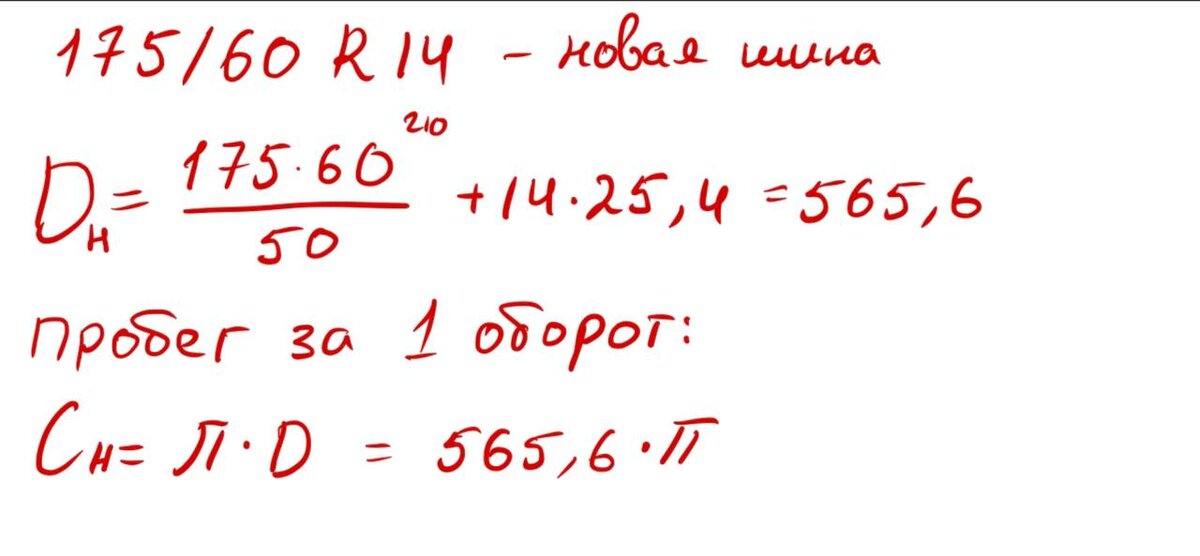 175/60 R 14 - новая шина
Dн = 175·60 210 / 50 + 14·25,4 = 565,6
пробег за 1 оборот:
Cн = π·D = 565,6·π